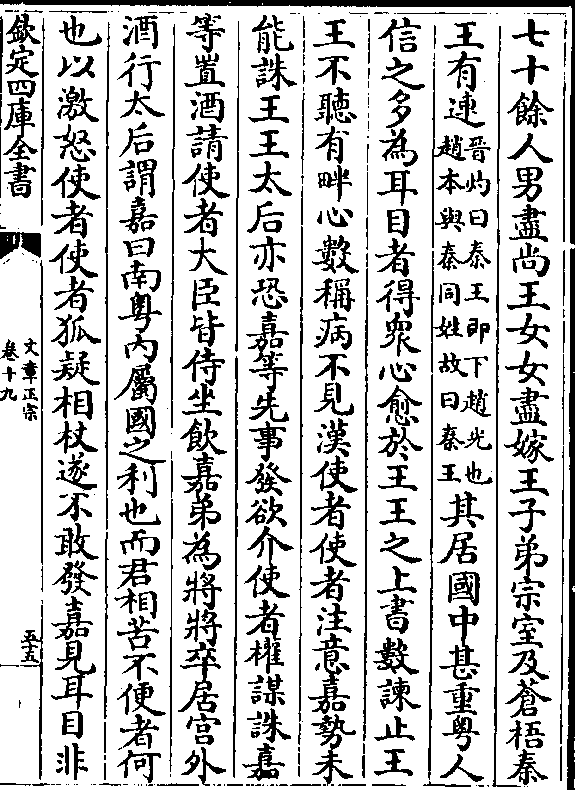 七十餘人男盡尚王女女盡嫁王子弟宗室及蒼梧秦
王有連晉灼曰秦王即下趙光也趙本與秦同姓故曰秦王其居國中甚重粤人
信之多為耳目者得衆心愈於王王之上書數諫止王
王不聽有畔心數稱病不見漢使者使者注意嘉勢未
能誅王王太后亦恐嘉等先事發欲介使者權謀誅嘉
等置酒請使者大臣皆侍坐飲嘉弟為將將卒居宫外
酒行太后謂嘉曰南粤内屬國之利也而君相苦不便者何
也以激怒使者使者狐疑相杖遂不敢發嘉見耳目非
欽定四庫全書
文章正宗
卷十九
五十五